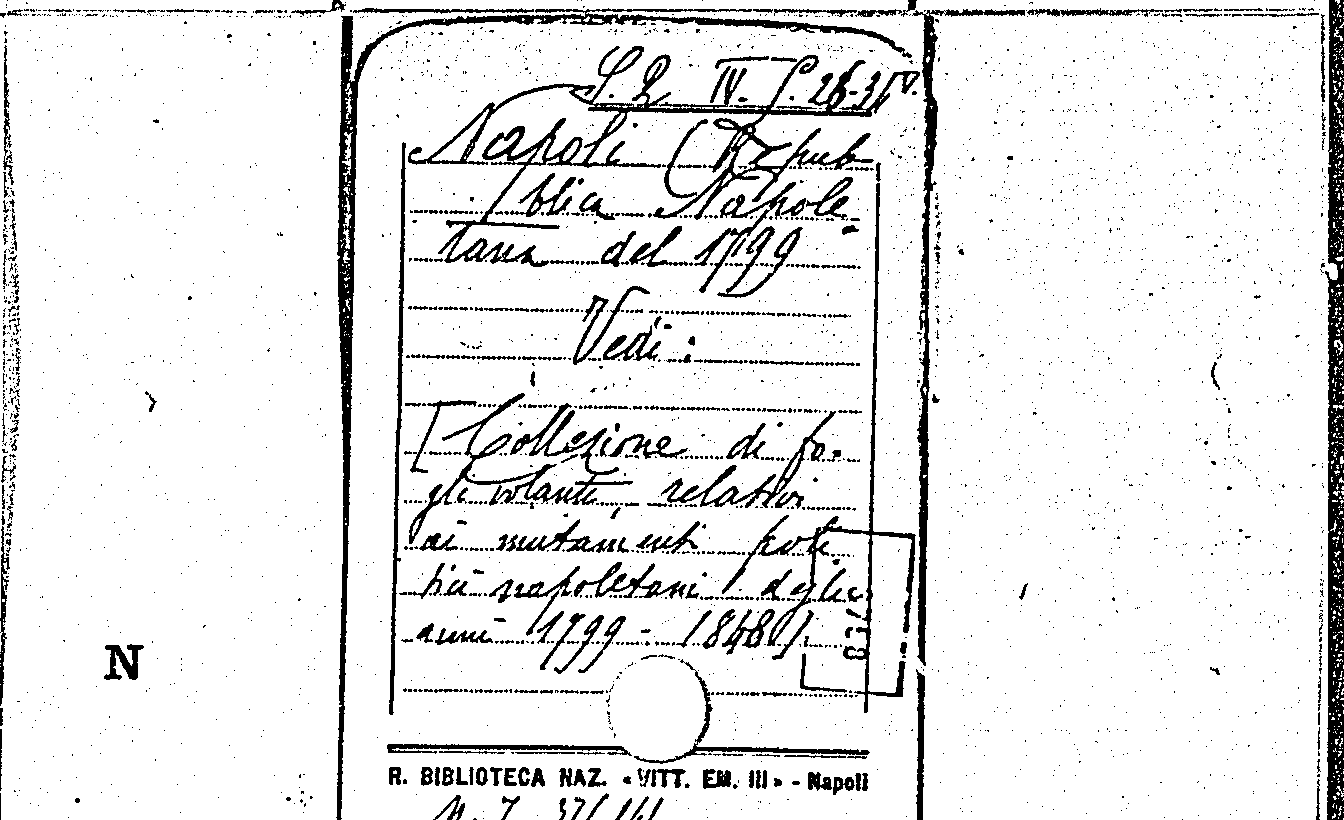 S. Q. IV. S. 26-31 IV.
Napoli (Repub-
blica Napole-
tana del 1799
Vedi:
[Collezione di fo-
gli volanti, relativi
ai mutamenti poli-
tici napoletani degli
anni 1799 - 1848].
83/
N
R. BIBLIOTECA NAZ. « VITT. EM. III » - Napoli